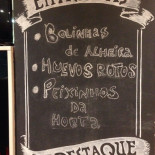 BOLINHAS
de ALHEIRA
HUEVOS ROTOS
PEIXINHOS
DA
HORTA
DESTAQUE